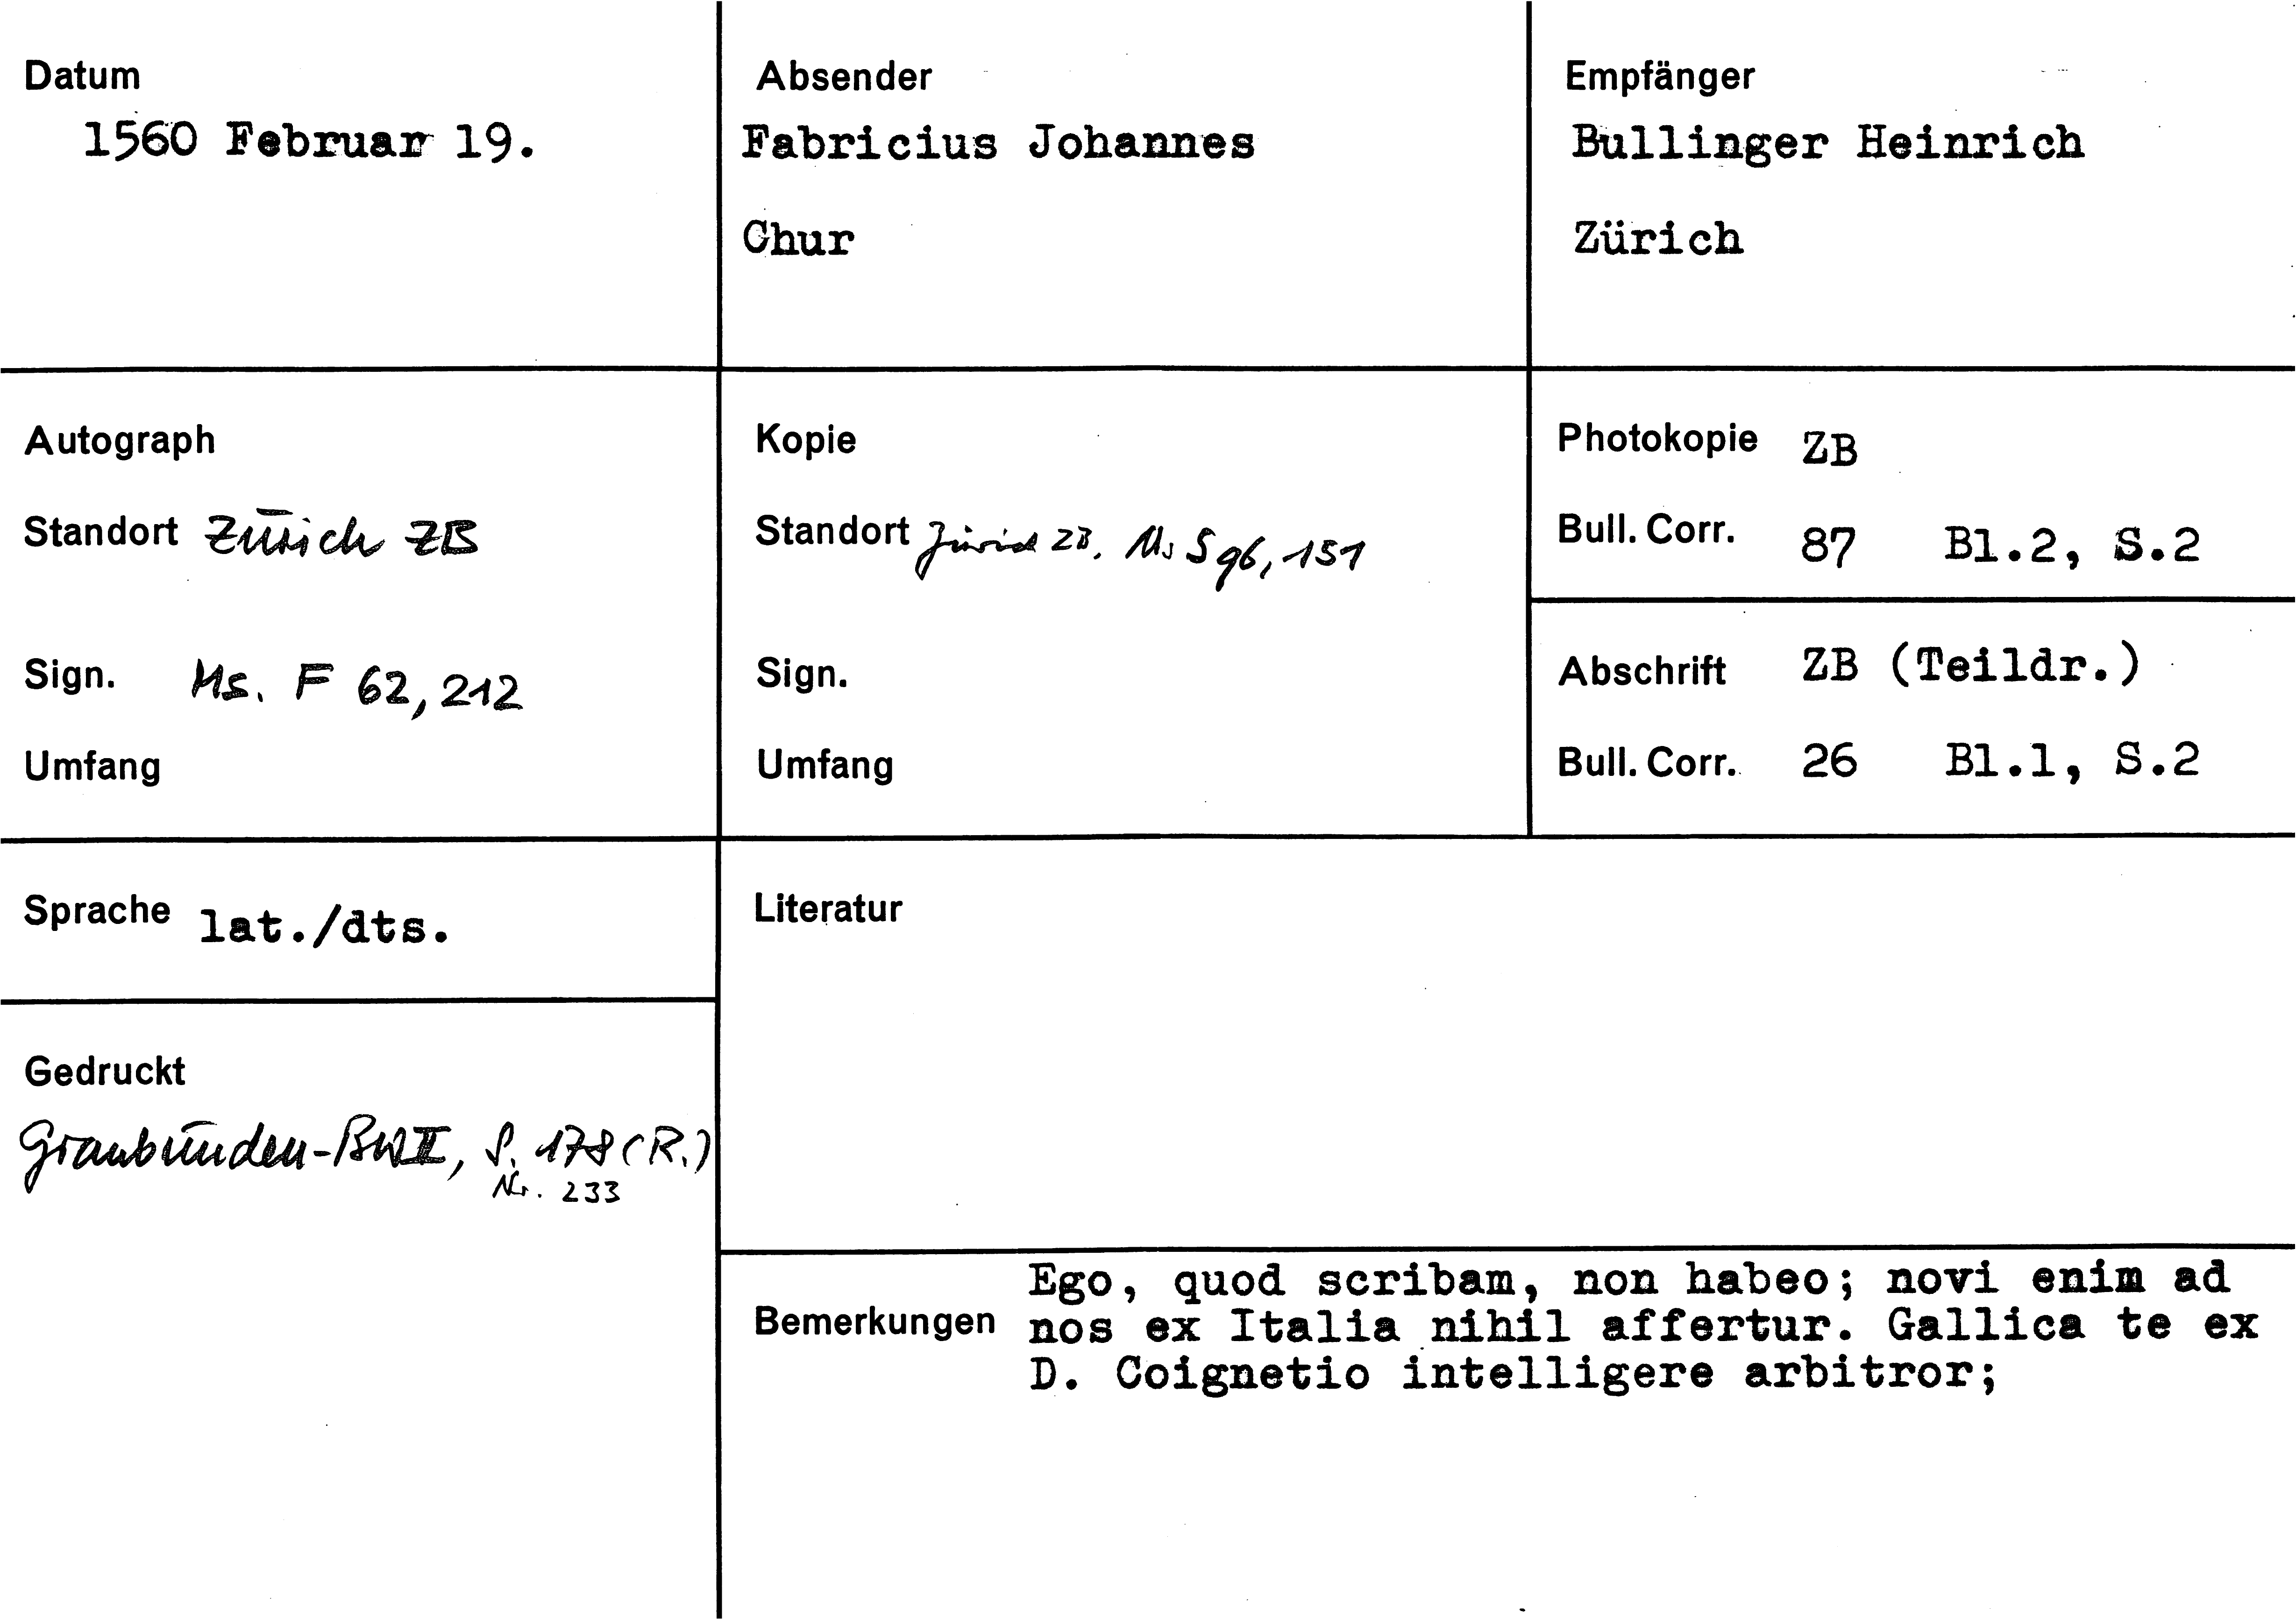 Datum
1560 Februar 19.
Absender
Fabricius Johannes
Chur
Empfänger
Bullinger Heinrich
Zürich
Autograph
Standort Zürich ZB
Sign. Ms. F 62, 212
Umfang
Kopie
Standort Zürich ZB, Ms S 96, 151
Sign.
Umfang
Photokopie ZB
Bull. Corr. 87 Bl.2, S.2
Abschrift ZB (Teildr.)
Bull. Corr. 26 Bl.1, S.2
Sprache lat./dts.
Gedruckt
Graubünden-BW II, S. 178 (R.)
Nr. 233
Literatur
Bemerkungen
Ego, quod scribam, non habeo; novi enim ad
nos ex Italia nihil affertur. Gallica te ex
D. Coignetio intelligere arbitror;